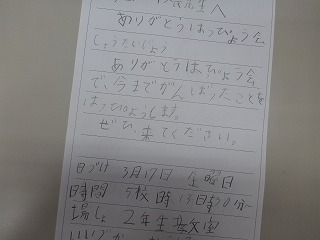 先生へ
ありがとうはっぴょう会
しょうたいじょう
ありがとうはっぴょう会
で、今までがんばったことを
はっぴょうします。
ぜひ、来てください。
日づけ 3月17日 金曜日
時間 5校時 13時50分〜
場しょ 2年生 教室